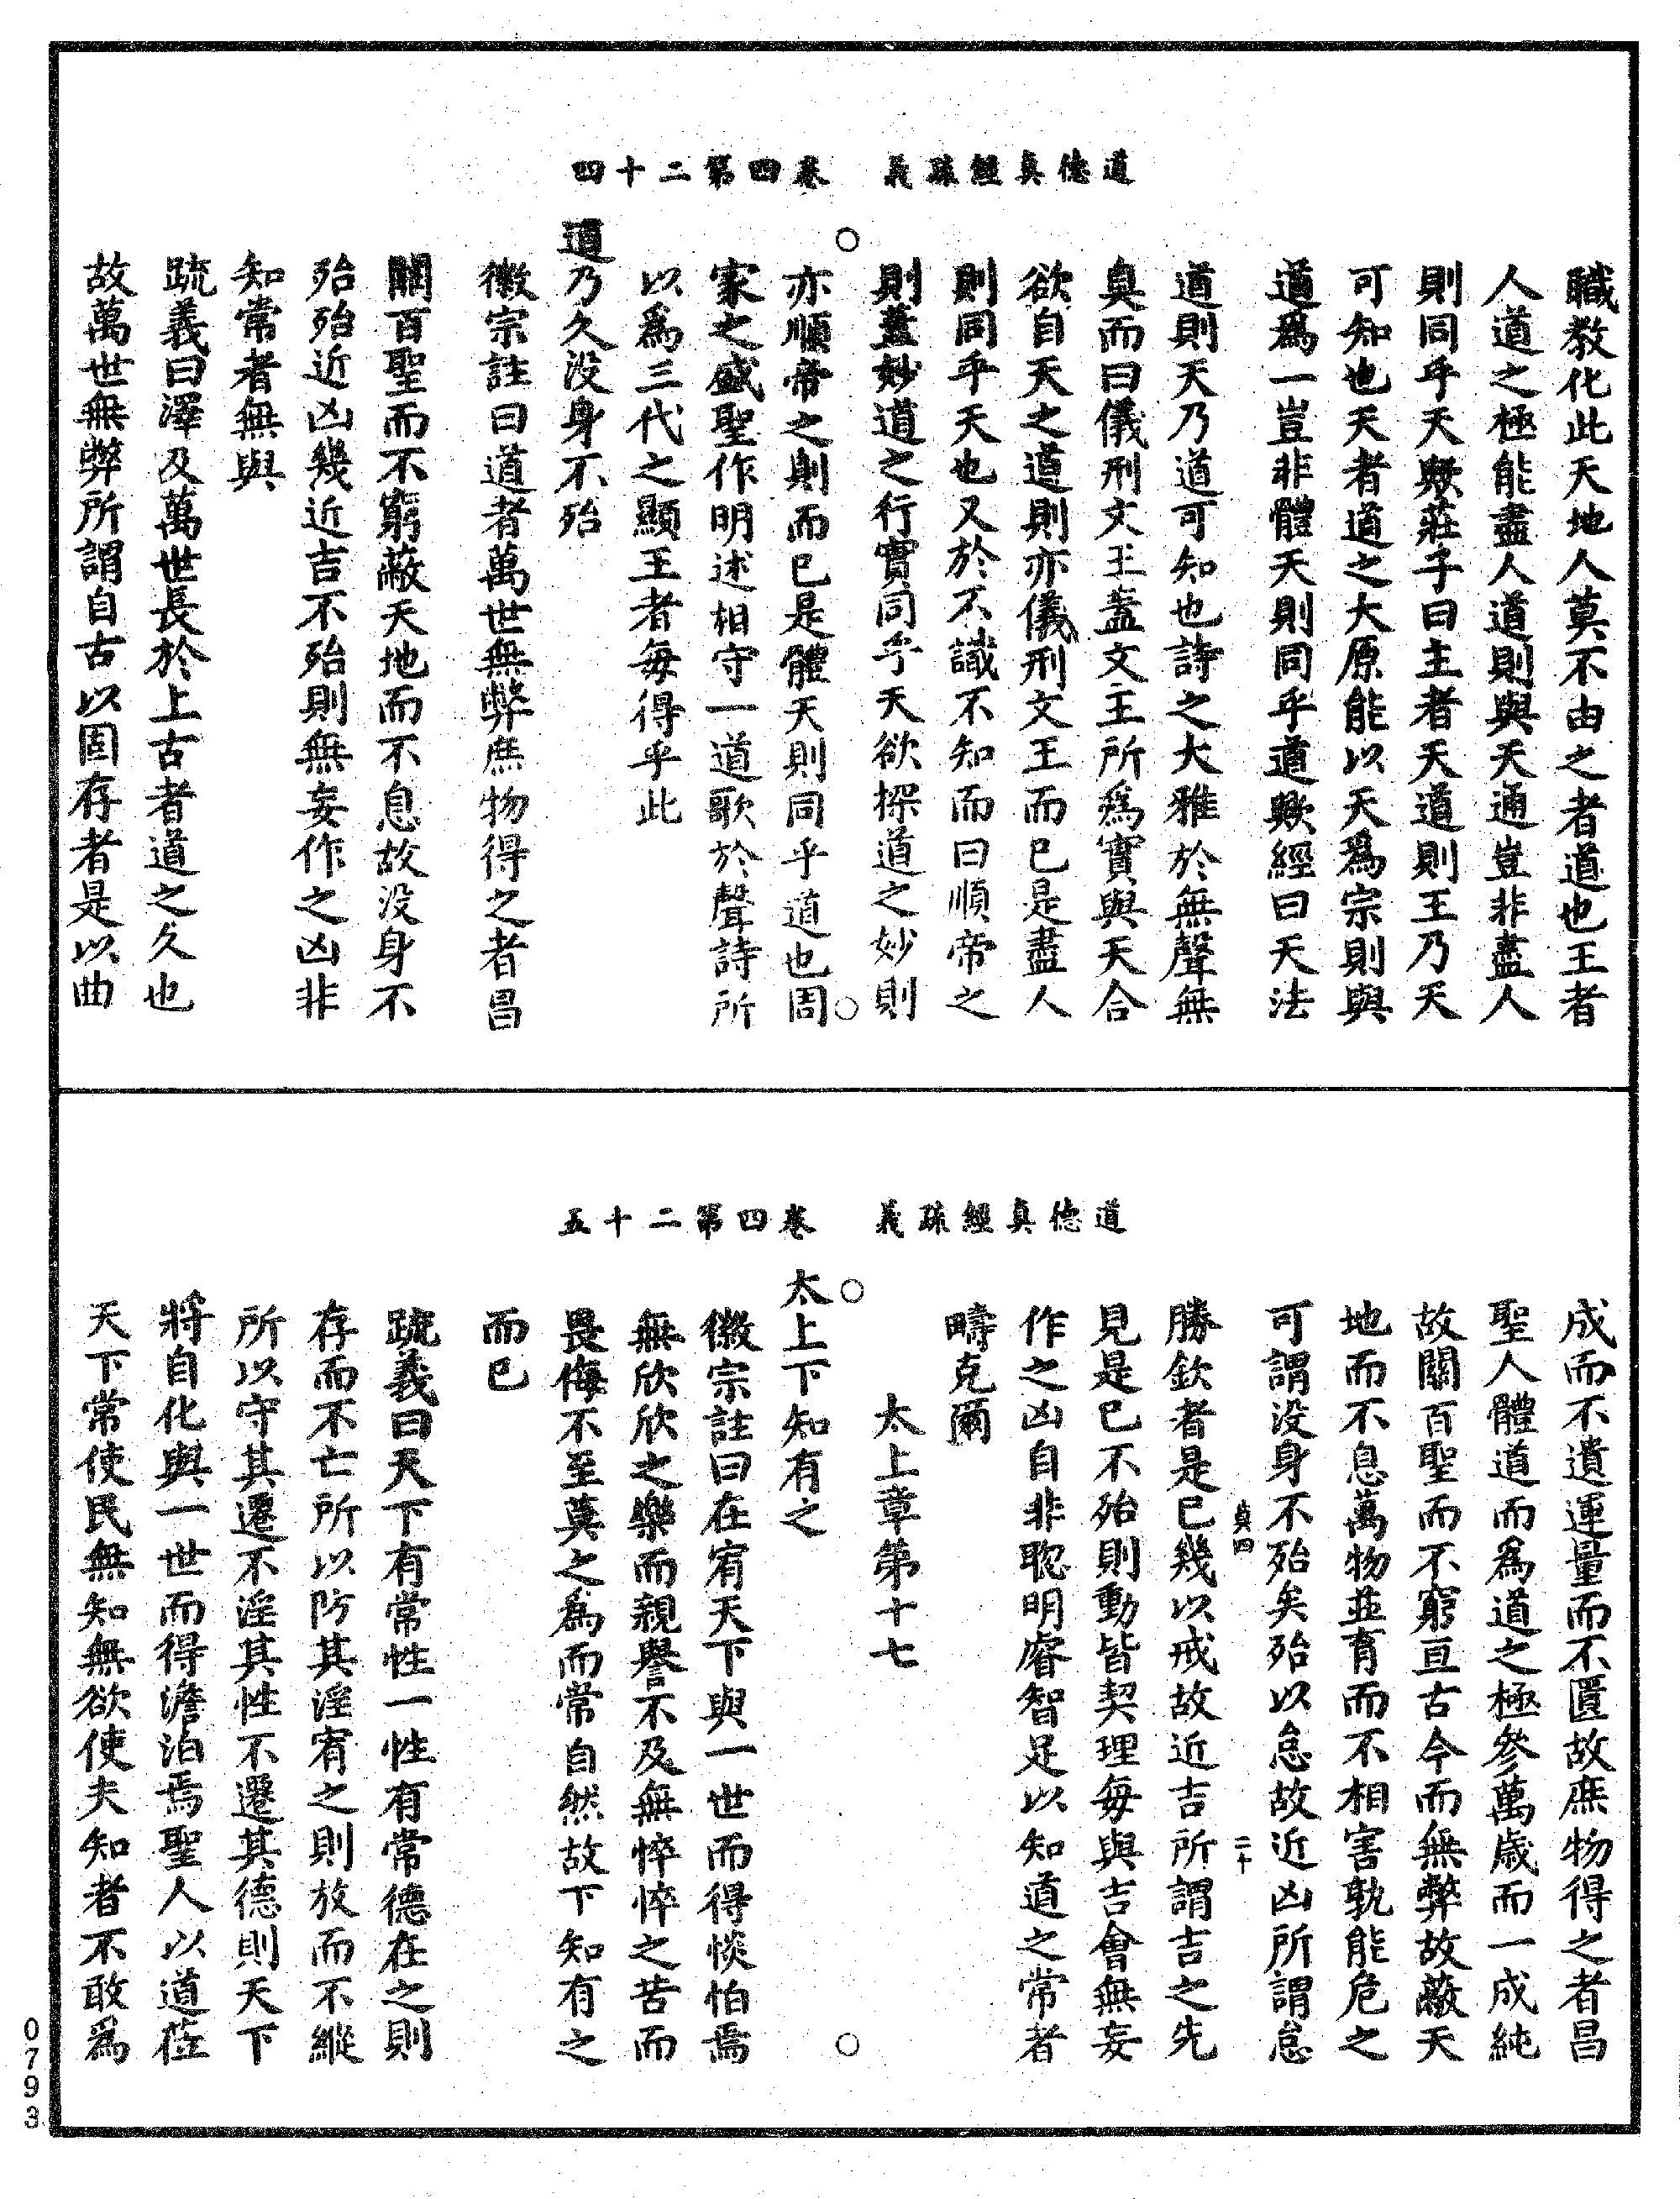 道德真經疏義　卷四第二十四
職教化此天地人莫不由之者道也王者
人道之極能盡人道則與天通豈非盡人
則同乎天歟莊子曰主者天道則王乃天
可知也天者道之大原能以天爲宗則與
道爲一豈非體天則同乎道歟經曰天法
道則天乃道可知也詩之大雅於無聲無
臭而曰儀刑文王蓋文王所爲實與天合
欲自天之道則亦儀刑文王而已是盡人
則同乎天也又於不識不知而曰順帝之
則蓋妙道之行實同乎天欲探道之妙則
亦順帝之則而已是體天則同乎道也周
家之盛聖作明述相守一道歌於聲詩所
以爲三代之顯王者每得乎此
道乃久没身不殆
徽宗註曰道者萬世無弊庶物得之者昌
關百聖而不窮蔽天地而不息故没身不
殆殆近凶幾近吉不殆則無妄作之凶非
知常者無與
疏義曰澤及萬世長於上古者道之久也
故萬世無弊所謂自古以固存者是以曲
道德真經疏義　卷四第二十五
成而不遺運量而不匱故庶物得之者昌
聖人體道而爲道之極參萬歲而一成純
故關百聖而不窮亘古今而無弊故蔽天
地而不息萬物並育而不相害孰能危之
可謂没身不殆矣殆以怠故近凶所謂怠
貞四　二十
勝欽者是已幾以戒故近吉所謂吉之先
見是已不殆則動皆契理每與吉會無妄
作之凶自非聰明睿智足以知道之常者
疇克爾
太上章第十七
太上下知有之
徽宗註曰在宥天下與一世而得惔怕焉
無欣欣之樂而親譽不及無悴悴之苦而
畏侮不至莫之爲而常自然故下知有之
而已
疏義曰天下有常性一性有常德在之則
存而不亡所以防其淫宥之則放而不縱
所以守其遷不淫其性不遷其德則天下
將自化與一世而得澹泊焉聖人以道莅
天下常使民無知無欲使夫知者不敢爲
0793